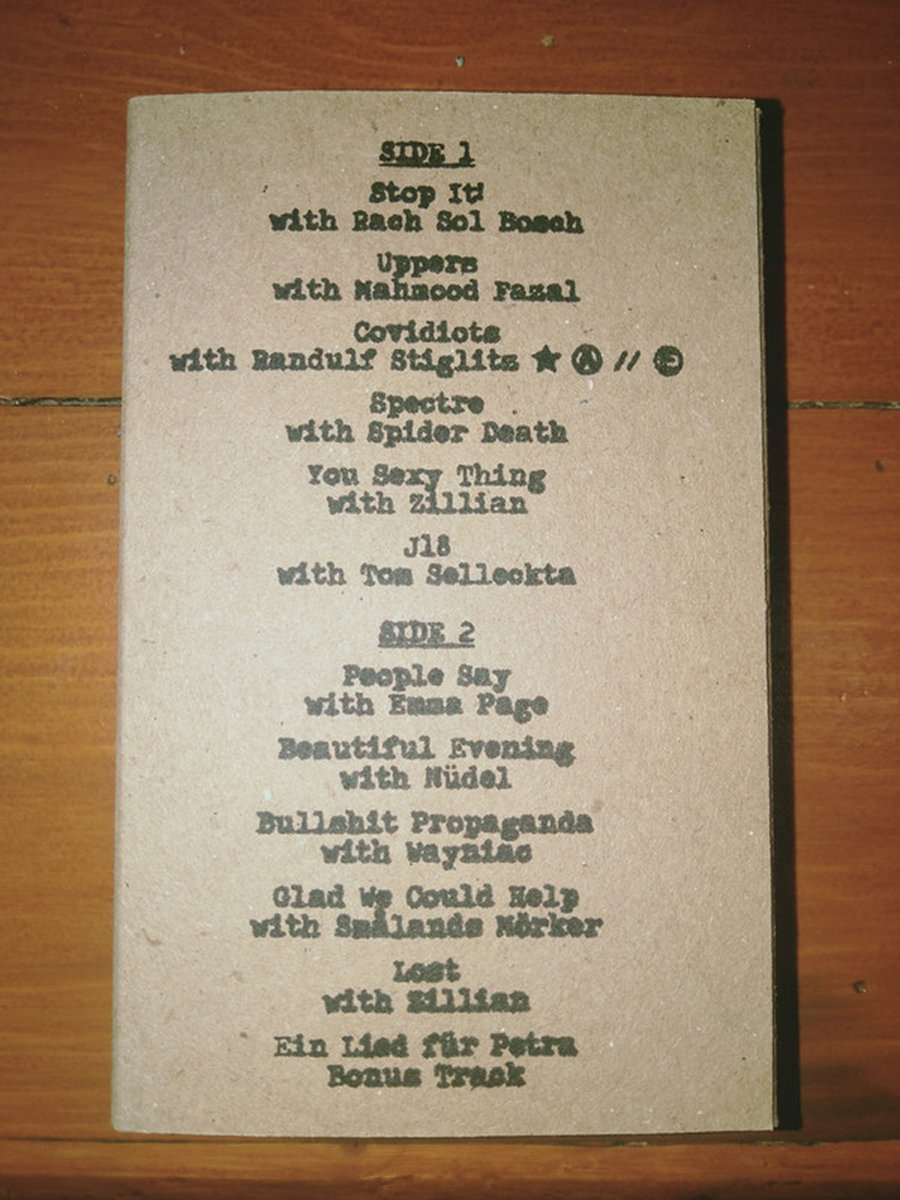 SIDE 1
Stop It!
with Rach Sol Bosch
Uppers
with Mahmood Fazal
Covidiots
with Randulf Stiglitz ★ Ⓐ // Ⓔ
Spectre
with Spider Death
You Sexy Thing
with Zillian
J18
with TomSelleckta
SIDE 2
People Say
with Emma Page
Beautiful Evening
with Nüdel
Bullshit Propaganda
with Wayniac
Glad We Could Help
with Smålands Mörker
Lost
with Zillian
Ein Lied für Petra
Bonus Track